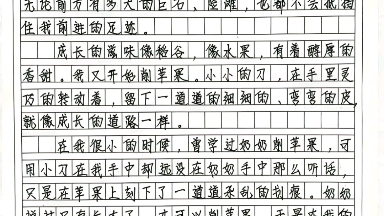 无论前方有多大的巨石、险滩，也都不会抵挡
住我前进的足迹。
成长的滋味像稻谷，像水果，有着醇厚的
香甜。我又开始削苹果。小小的刀，在手里灵
巧的转动着，留下一道道的细细的、弯弯的皮，
就像成长的道路一样。
在我很小的时候，曾学过奶奶削苹果，可
用小刀在我手中却远没在奶奶手中那么听话，
又是在苹果上刻下了一道道杂乱的划痕。奶奶